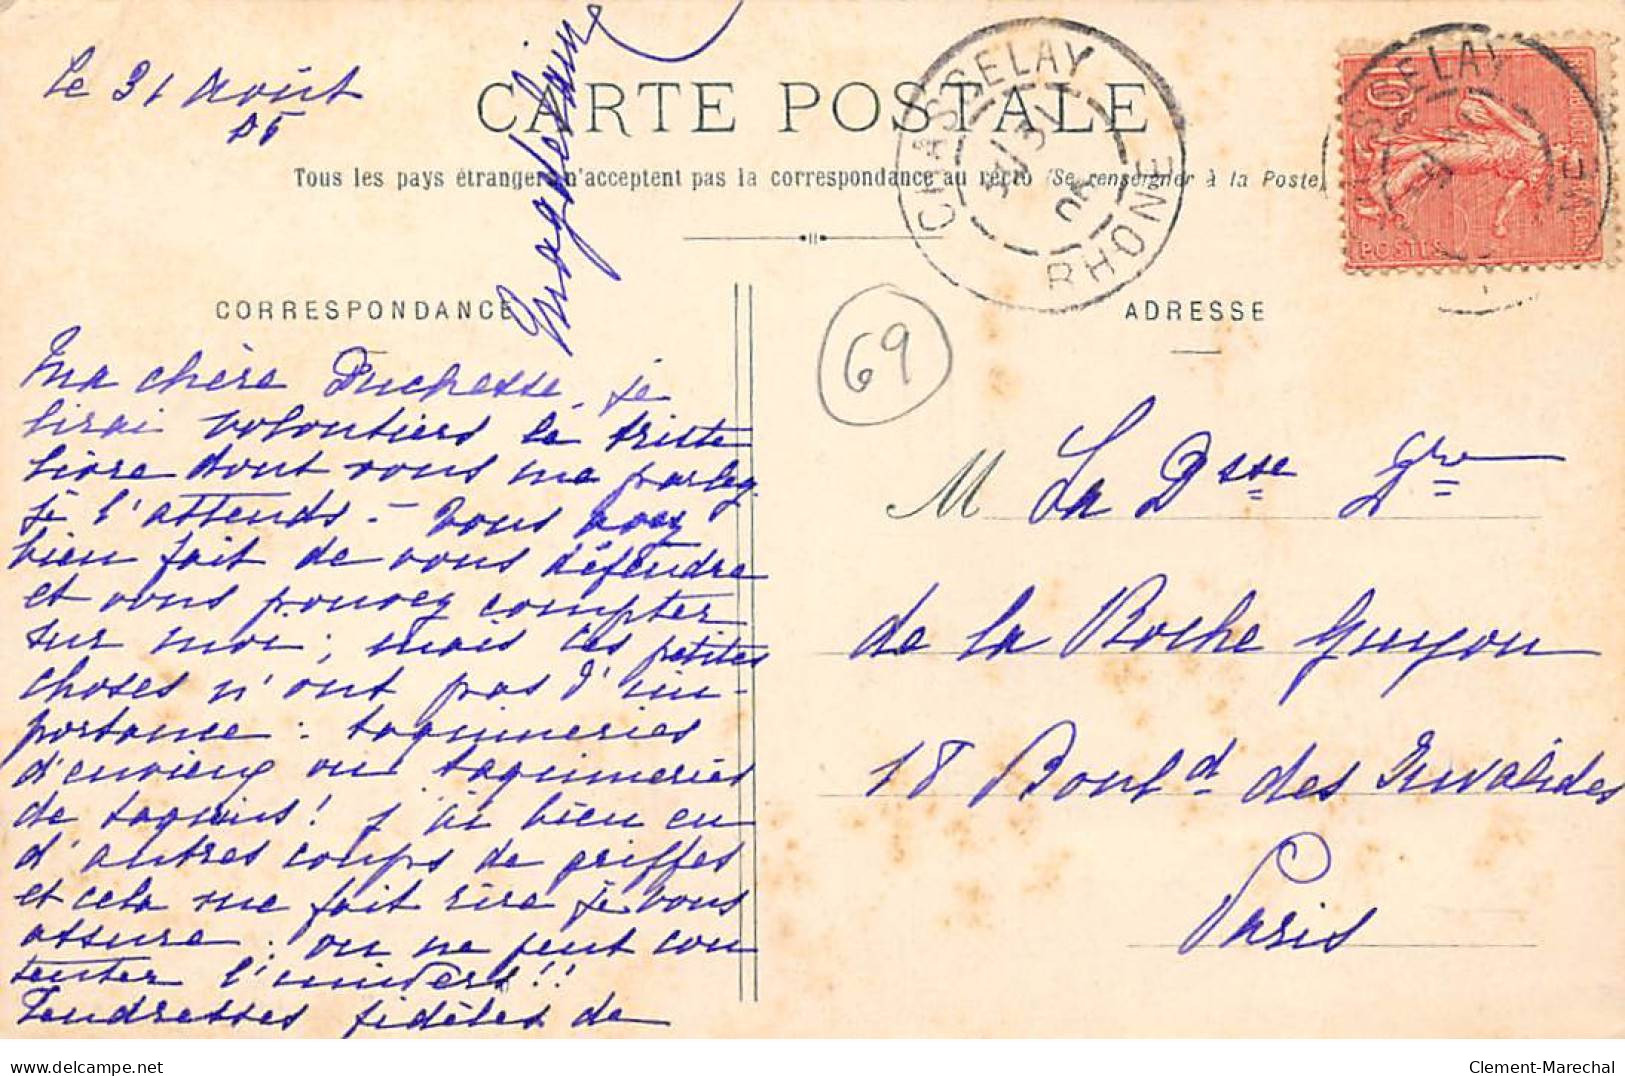 Le 31 Août
05
CARTE POSTALE
Tous les pays étrangers n'acceptent pas la correspondance au recto (Se renseigner à la Poste)
CHASSELAY
31
05
RHONE
POSTES
CORRESPONDANCE
Ma chère Duchesse, je
lirai volontiers le triste
livre dont vous me parlez
je l'attends - vous avez
bien fait de vous défendre
et vous pouvez compter
sur moi ; mais ces petites
choses n'ont pas d'im-
portance : taquineries
d'envieux ou taquineries
de taquins ! j'ai bien eu
d'autres coups de griffes
et cela me fait rire je vous
assure. on ne peut con
tenter l'univers !!
Tendresses fidèles de
Magdelaine
69
ADRESSE
M La Dsse Dre
de la Roche Guyon
18 Boul d des Invalides
Paris
delcampe.net
Clement-Marechal